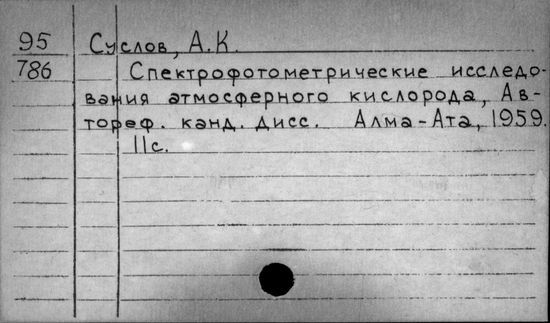 95 Суслов, А.К.
786 Спектрофотометрические исследо-
вания атмосферного кислорода, Ав-
тореф. канд. дисс. Алма-Ата, 1959.
11с.